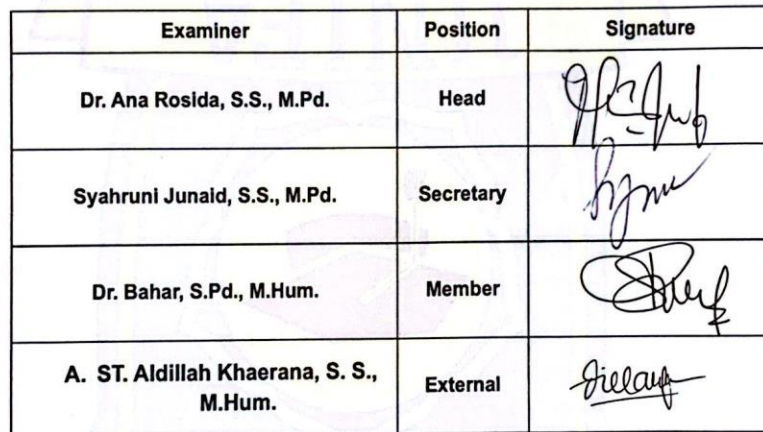 Examiner Position Signature
Dr. Ana Rosida, S.S., M.Pd. Head
Syahruni Junaid, S.S., M.Pd. Secretary
Dr. Bahar, S.Pd., M.Hum. Member
A. ST. Aldillah Khaerana, S. S., External
M.Hum.